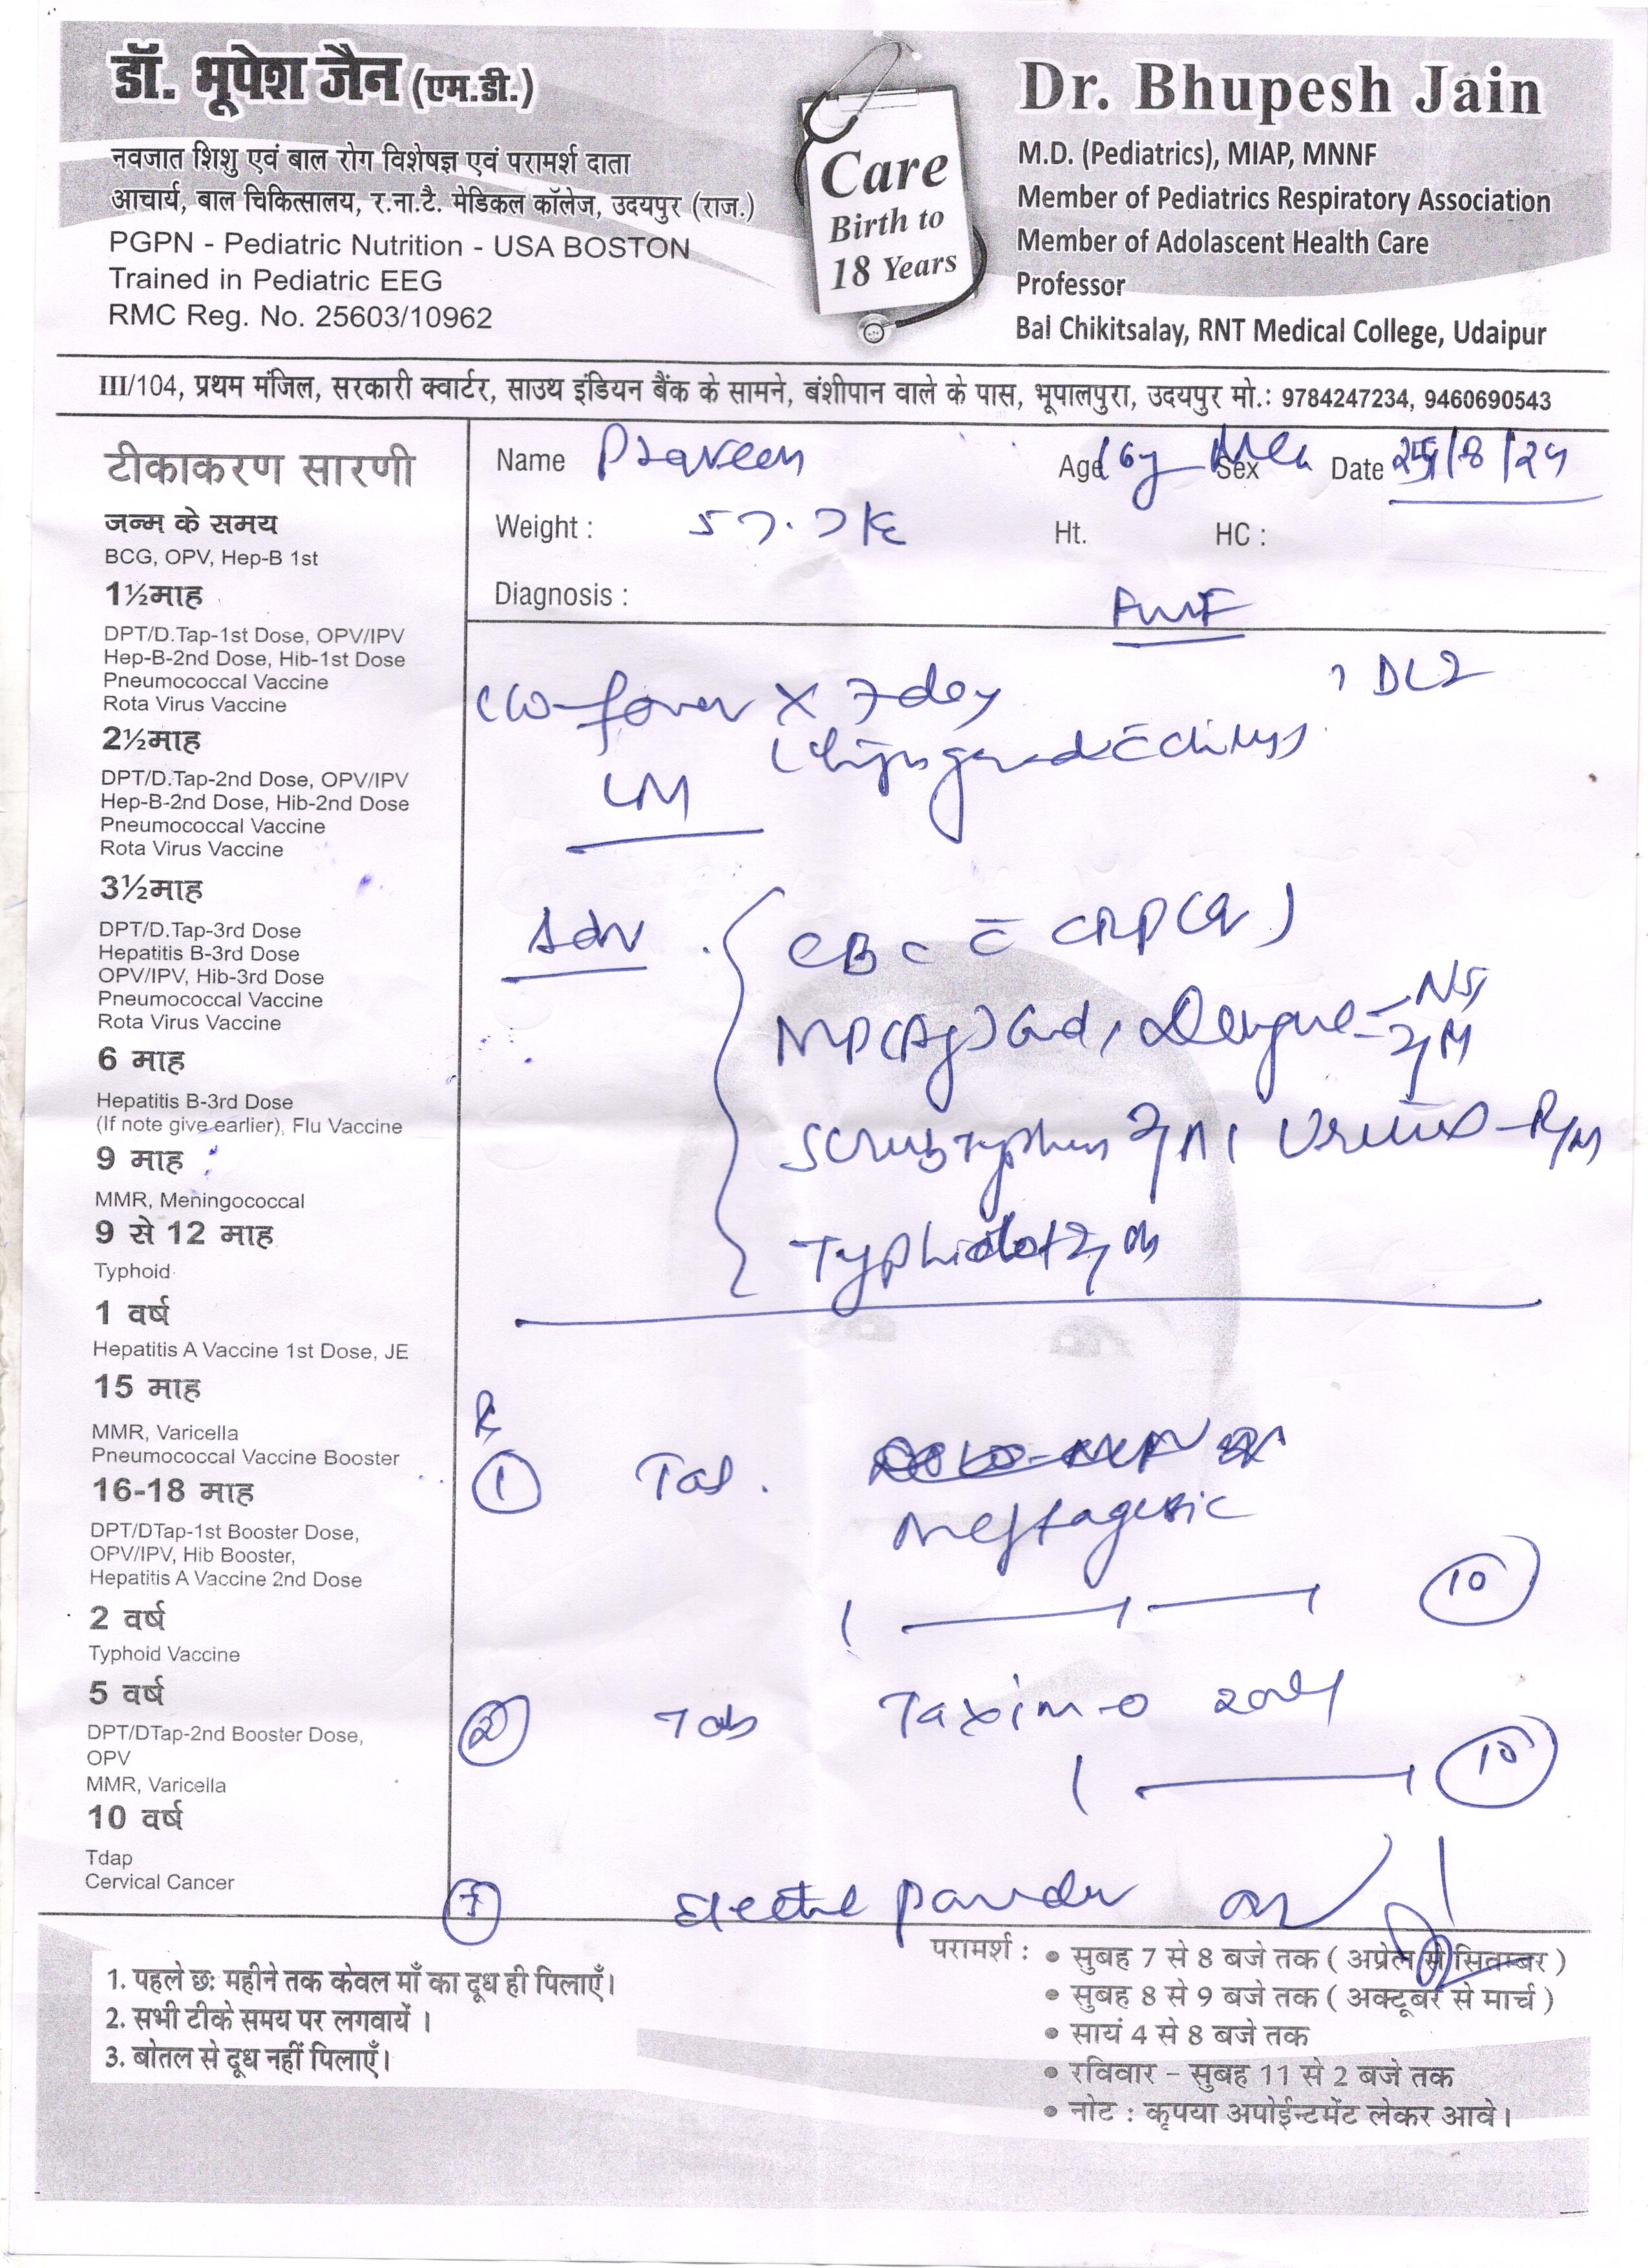 डॉ. भूपेश जैन (एम.डी.)
नवजात शिशु एवं बाल रोग विशेषज्ञ एवं परामर्श दाता
आचार्य, बाल चिकित्सालय, र.ना.टै. मेडिकल कॉलेज, उदयपुर (राज.)
PGPN - Pediatric Nutrition - USA BOSTON
Trained in Pediatric EEG
RMC Reg. No. 25603/10962
Care
Birth to
18 Years
Dr. Bhupesh Jain
M.D. (Pediatrics), MIAP, MNNF
Member of Pediatrics Respiratory Association
Member of Adolascent Health Care
Professor
Bal Chikitsalay, RNT Medical College, Udaipur
III/104, प्रथम मंजिल, सरकारी क्वार्टर, साउथ इंडियन बैंक के सामने, बंशीपान वाले के पास, भूपालपुरा, उदयपुर मो.: 9784247234, 9460690543
टीकाकरण सारणी
जन्म के समय
BCG, OPV, Hep-B 1st
1½माह
DPT/D.Tap-1st Dose, OPV/IPV
Hep-B-2nd Dose, Hib-1st Dose
Pneumococcal Vaccine
Rota Virus Vaccine
2½माह
DPT/D.Tap-2nd Dose, OPV/IPV
Hep-B-2nd Dose, Hib-2nd Dose
Pneumococcal Vaccine
Rota Virus Vaccine
3½माह
DPT/D.Tap-3rd Dose
Hepatitis B-3rd Dose
OPV/IPV, Hib-3rd Dose
Pneumococcal Vaccine
Rota Virus Vaccine
6 माह
Hepatitis B-3rd Dose
(If note give earlier), Flu Vaccine
9 माह
MMR, Meningococcal
9 से 12 माह
Typhoid
1 वर्ष
Hepatitis A Vaccine 1st Dose, JE
15 माह
MMR, Varicella
Pneumococcal Vaccine Booster
16-18 माह
DPT/DTap-1st Booster Dose,
OPV/IPV, Hib Booster,
Hepatitis A Vaccine 2nd Dose
2 वर्ष
Typhoid Vaccine
5 वर्ष
DPT/DTap-2nd Booster Dose,
OPV
MMR, Varicella
10 वर्ष
Tdap
Cervical Cancer
Name Praveen Age 16y Sex Date /8/24
Weight : 57.7 k Ht. HC :
Diagnosis :
c/o fever x 7 day
(high grade c̄ chills)
Adv
CBC c̄ CRP(Q)
MP(Ag) Card, Dengue NS1
IgM
Scrub typhus IgM, Urine R/M
Typhidot IgM
Rx
① Tab.
Meftagesic
1 — 1 — 1 10
② Tab Taxim-O 200
1 — 1 10
Electral powder
1. पहले छः महीने तक केवल माँ का दूध ही पिलाएँ।
2. सभी टीके समय पर लगवायें ।
3. बोतल से दूध नहीं पिलाएँ।
परामर्श : • सुबह 7 से 8 बजे तक ( अप्रेल से सितम्बर )
• सुबह 8 से 9 बजे तक ( अक्टूबर से मार्च )
• सायं 4 से 8 बजे तक
• रविवार – सुबह 11 से 2 बजे तक
• नोट : कृपया अपोईन्टमेंट लेकर आवे।